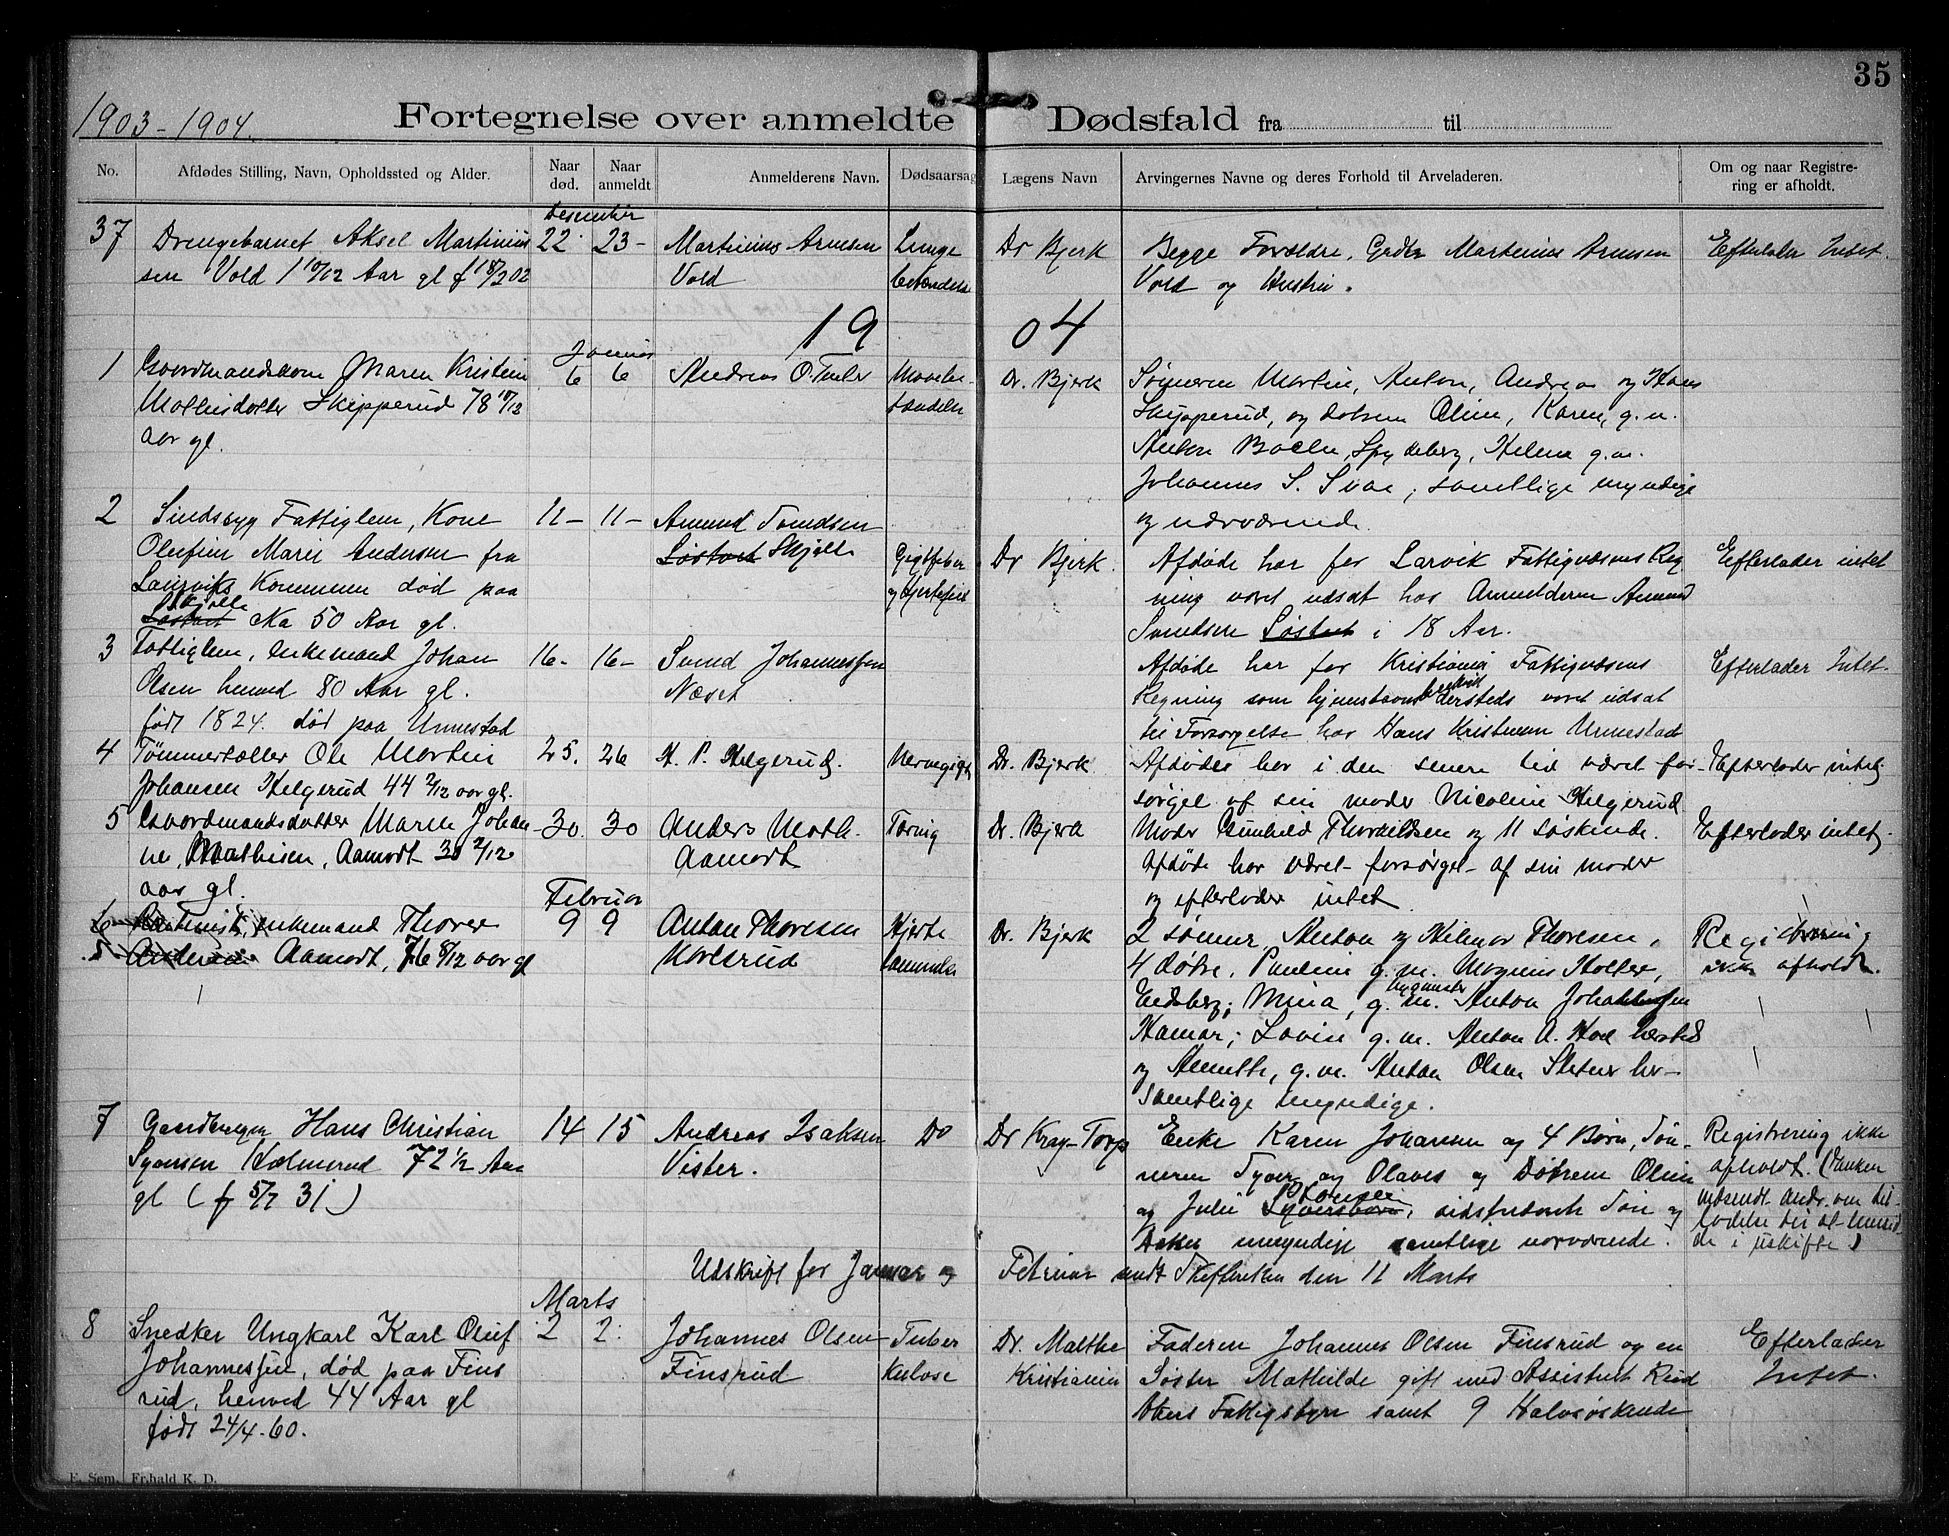 35
1903-1904.
Fortegnelse over anmeldte Dødsfald fra til
No. Afdødes Stilling, Navn, Opholdssted og Alder. Naar død. Naar anmeldt Anmelderens Navn. Dødsaarsag Lægens Navn Arvingernes Navne og deres Forhold til Arveladeren. Om og naar Registrering er afholdt.
Desember
37 Drengebarnet Aksel Martinius 22. 23- Martinius Arnesen Lunge Dr Bjerk Begge Forældre, Grdbr Martinius Arnesen Efterlader Intet.
sen Vold 1 10/12 Aar gl f 18/2 02 Vold betændelse Vold og Hustru.
19 04
Januar
1 Gaardmandskone Maren Kristine 6 6 Andreas O. Dr. Bjerk Sønneren Martin, Anton, Andreas og Hans
Skipperud 78 Skipperud, og Oline, Karen, g.m.
aar gl. Anton Spydeberg, Helene g.m.
Johannes S. samtlige myndige
og nærværende.
2 Sindssyg Fattiglem, Kone 11- 11- Amund Svendsen
Olufine Marie Andersen fra Løstvet Skjølle Gigtfeber Dr Bjerk. Afdøde har for Larvik Fattigvæsens Reg Efterlader intet
Laurviks Kommune død paa og Hjertefeil ning været udsat hos Anmelderen Amund
Skjølle
Løstvet cka 50 Aar gl. Svendsen Løstvet i 18 Aar.
3 Fattiglem, enkemand Johan 16- 16- Svend Johannessen Afdøde har for Kristiania Fattigvæsens Efterlader Intet.
Olsen henved 80 Aar gl. Næset Regning som hjemstavns dersteds været udsat
født 1824. død paa Unnestad til Forsørgelse hos Hans Kristiansen Unnestad
4 Tømmertæller Ole Martin 25. 26 H. P. Helgerud. Nervegigt Dr. Bjerk Afdøde har i den senere tid været for- Efterlader intet
Johansen Helgerud 44 2/12 aar gl. sørget af sin moder Nicoline Helgerud
5 Gaardmandsdatter Maren Johan 30. 30 Anders Math. Tæring Dr. Bjerk Moder Gunhild Thorkildsen og 11 søskende. Efterlader intet.
ne, Mathisen, Aamodt 30 2/12 Aamodt Afdøde har været forsørget af sin moder
aar gl. og efterlader intet.
Februar
6 enkemand Thorer 9 9 Anton Thoresen Hjerte Dr. Bjerk 2 sønner, Anton og Hilmar Thoresen, Registrering
5. Andersen Aamodt, 76 8/12 aar gl Karlsrud lammelse 4 døtre, Pauline g.m. Magnus Holter, ikke afholdt.
Eidsberg; Mina, g.m. Anton Johannessen
Hamar; Lovise g.m. Anton A. Hoel hersted
og Annette, g.m. Anton Olsen Sletner her-
Samtlige myndige.
7 Gaardbruger Hans Christian 14 15 Andreas Isaksen Do Dr Krag-Torp Enke Karen Johansen og 4 Børn, Søn- Registrering ikke
Syversen Holmerud 72 1/2 Aar Vister. neren Syver og Olaves og Døtrene Oline afholdt. (Enken
gl (f 5/7 31) og Julie Syversbørn, sidstnævnte Søn og
Datter umyndige samtlige nærværende. de i uskifte)
Udskrift for Januar og Februar sendt Skifteretten den 11 Marts
Marts
8 Snedker Ungkarl Karl Oluf 2 2. Johannes Olsen Tuber Dr. Malthe Faderen Johannes Olsen Finsrud og en Efterlader
Johannessen, død paa Fins Finsrud kulose Kristiania Søster Mathilde gift med Assistent Rud Intet.
rud, henved 44 Aar gl Akers Fattigstyre samt 9 Halvsøskende
født 24/4-60.
E. Sem. Fr.hald K. D.